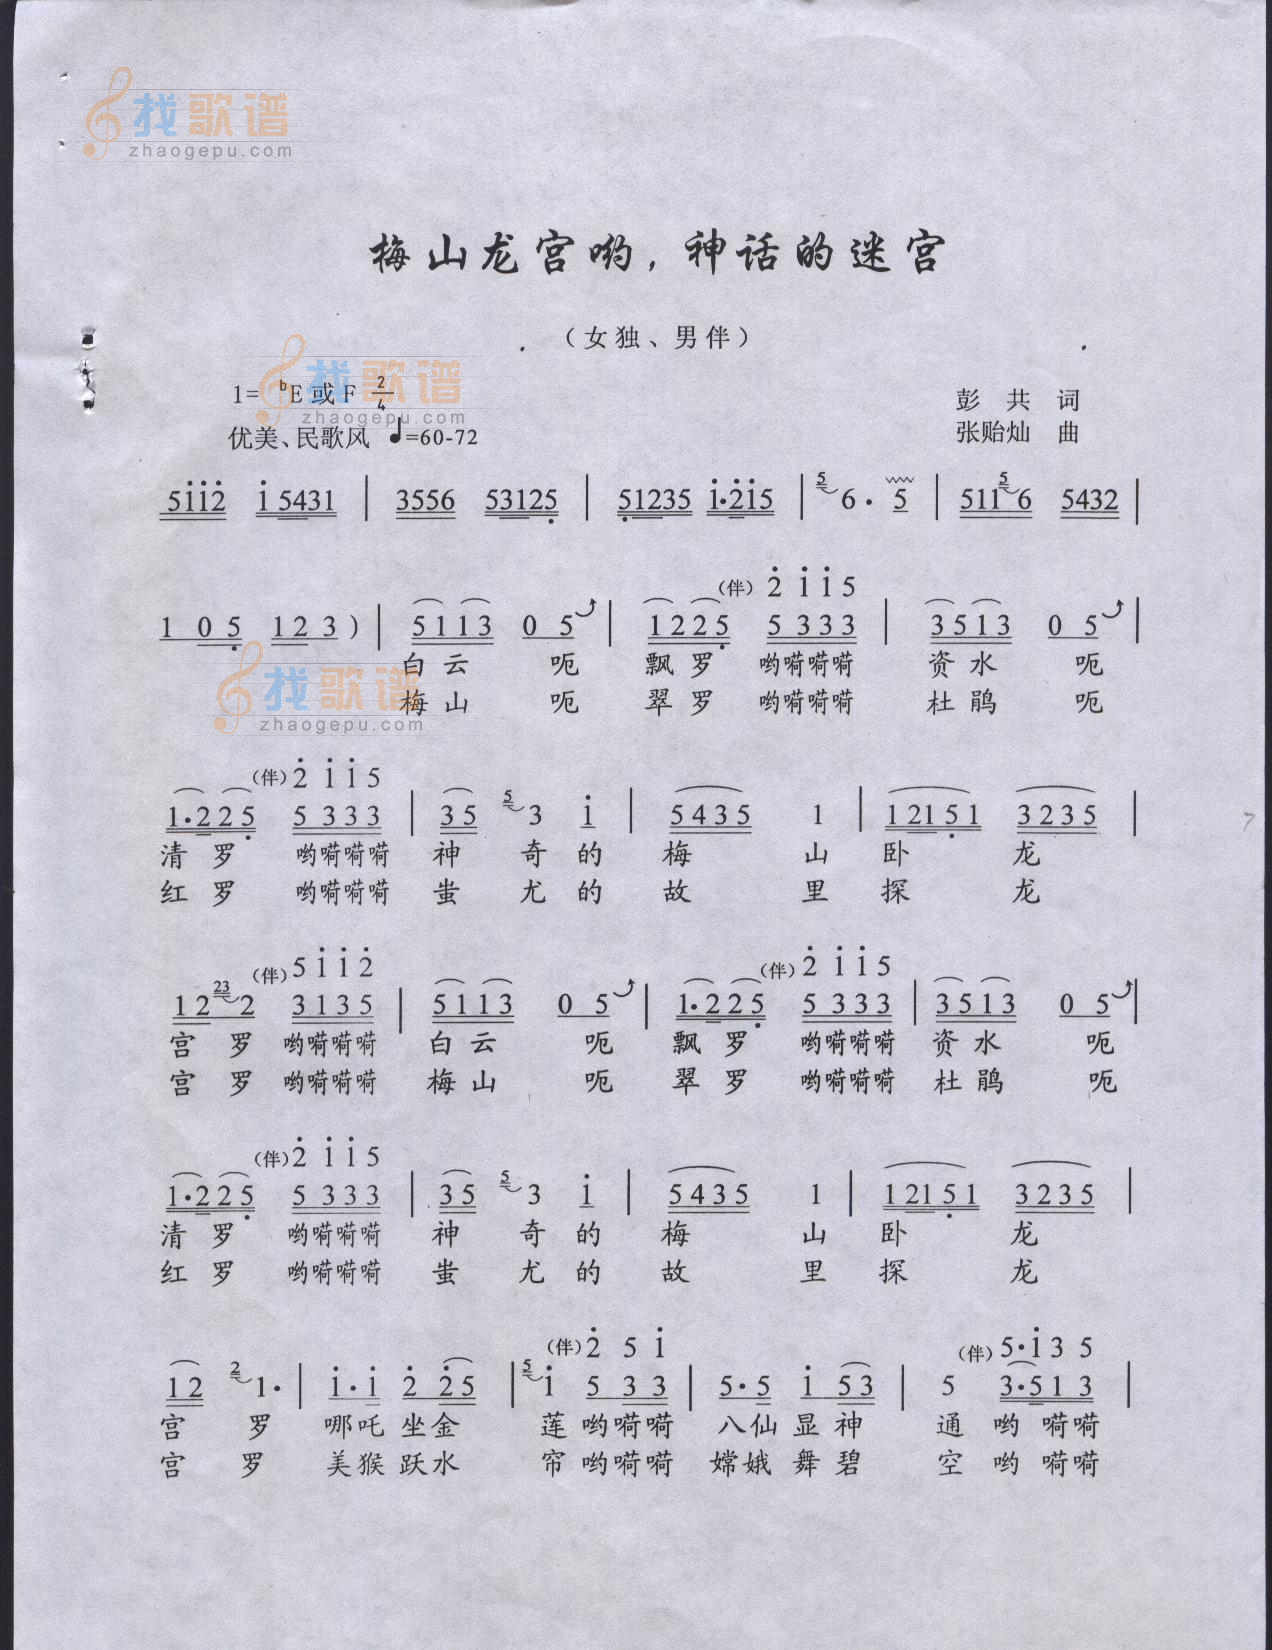 找歌谱
zhaogepu.com
梅山龙宫哟，神话的迷宫
（女独、男伴）
找歌谱
zhaogepu.com
1= bE 或 F 2/4
彭 共 词
优美、民歌风 ♩=60-72
张贻灿 曲
5112 1 5431 | 3556 53125 | 51235 1·215 | 5 6· 5 | 511 5 6 5432 |
(伴) 2 1 1 5
1 0 5 1 2 3 ) | 5 1 1 3 0 5 | 1 2 2 5 5 3 3 3 | 3 5 1 3 0 5 |
白云 呃 飘罗 哟嗬嗬嗬 资水 呃
梅山 呃 翠罗 哟嗬嗬嗬 杜鹃 呃
找歌谱
zhaogepu.com
(伴) 2 1 1 5
1·2 2 5 5 3 3 3 | 3 5 5 3 1 | 5 4 3 5 1 | 1 21 5 1 3 2 3 5 |
清罗 哟嗬嗬嗬 神 奇的 梅 山 卧 龙
红罗 哟嗬嗬嗬 蚩 尤的 故 里 探 龙
(伴) 5 1 1 2 (伴) 2 1 1 5
1 2 23 2 3 1 3 5 | 5 1 1 3 0 5 | 1·2 2 5 5 3 3 3 | 3 5 1 3 0 5 |
宫 罗 哟嗬嗬嗬 白云 呃 飘罗 哟嗬嗬嗬 资水 呃
宫 罗 哟嗬嗬嗬 梅山 呃 翠罗 哟嗬嗬嗬 杜鹃 呃
(伴) 2 1 1 5
1·2 2 5 5 3 3 3 | 3 5 5 3 1 | 5 4 3 5 1 | 1 21 5 1 3 2 3 5 |
清罗 哟嗬嗬嗬 神 奇的 梅 山 卧 龙
红罗 哟嗬嗬嗬 蚩 尤的 故 里 探 龙
(伴) 2 5 1 (伴) 5·1 3 5
1 2 2 1· | 1·1 2 2 5 | 5 1 5 3 3 | 5·5 1 5 3 | 5 3·5 1 3 |
宫 罗 哪吒坐金 莲哟嗬嗬 八仙显神 通哟嗬嗬
宫 罗 美猴跃水 帘哟嗬嗬 嫦娥舞碧 空哟嗬嗬